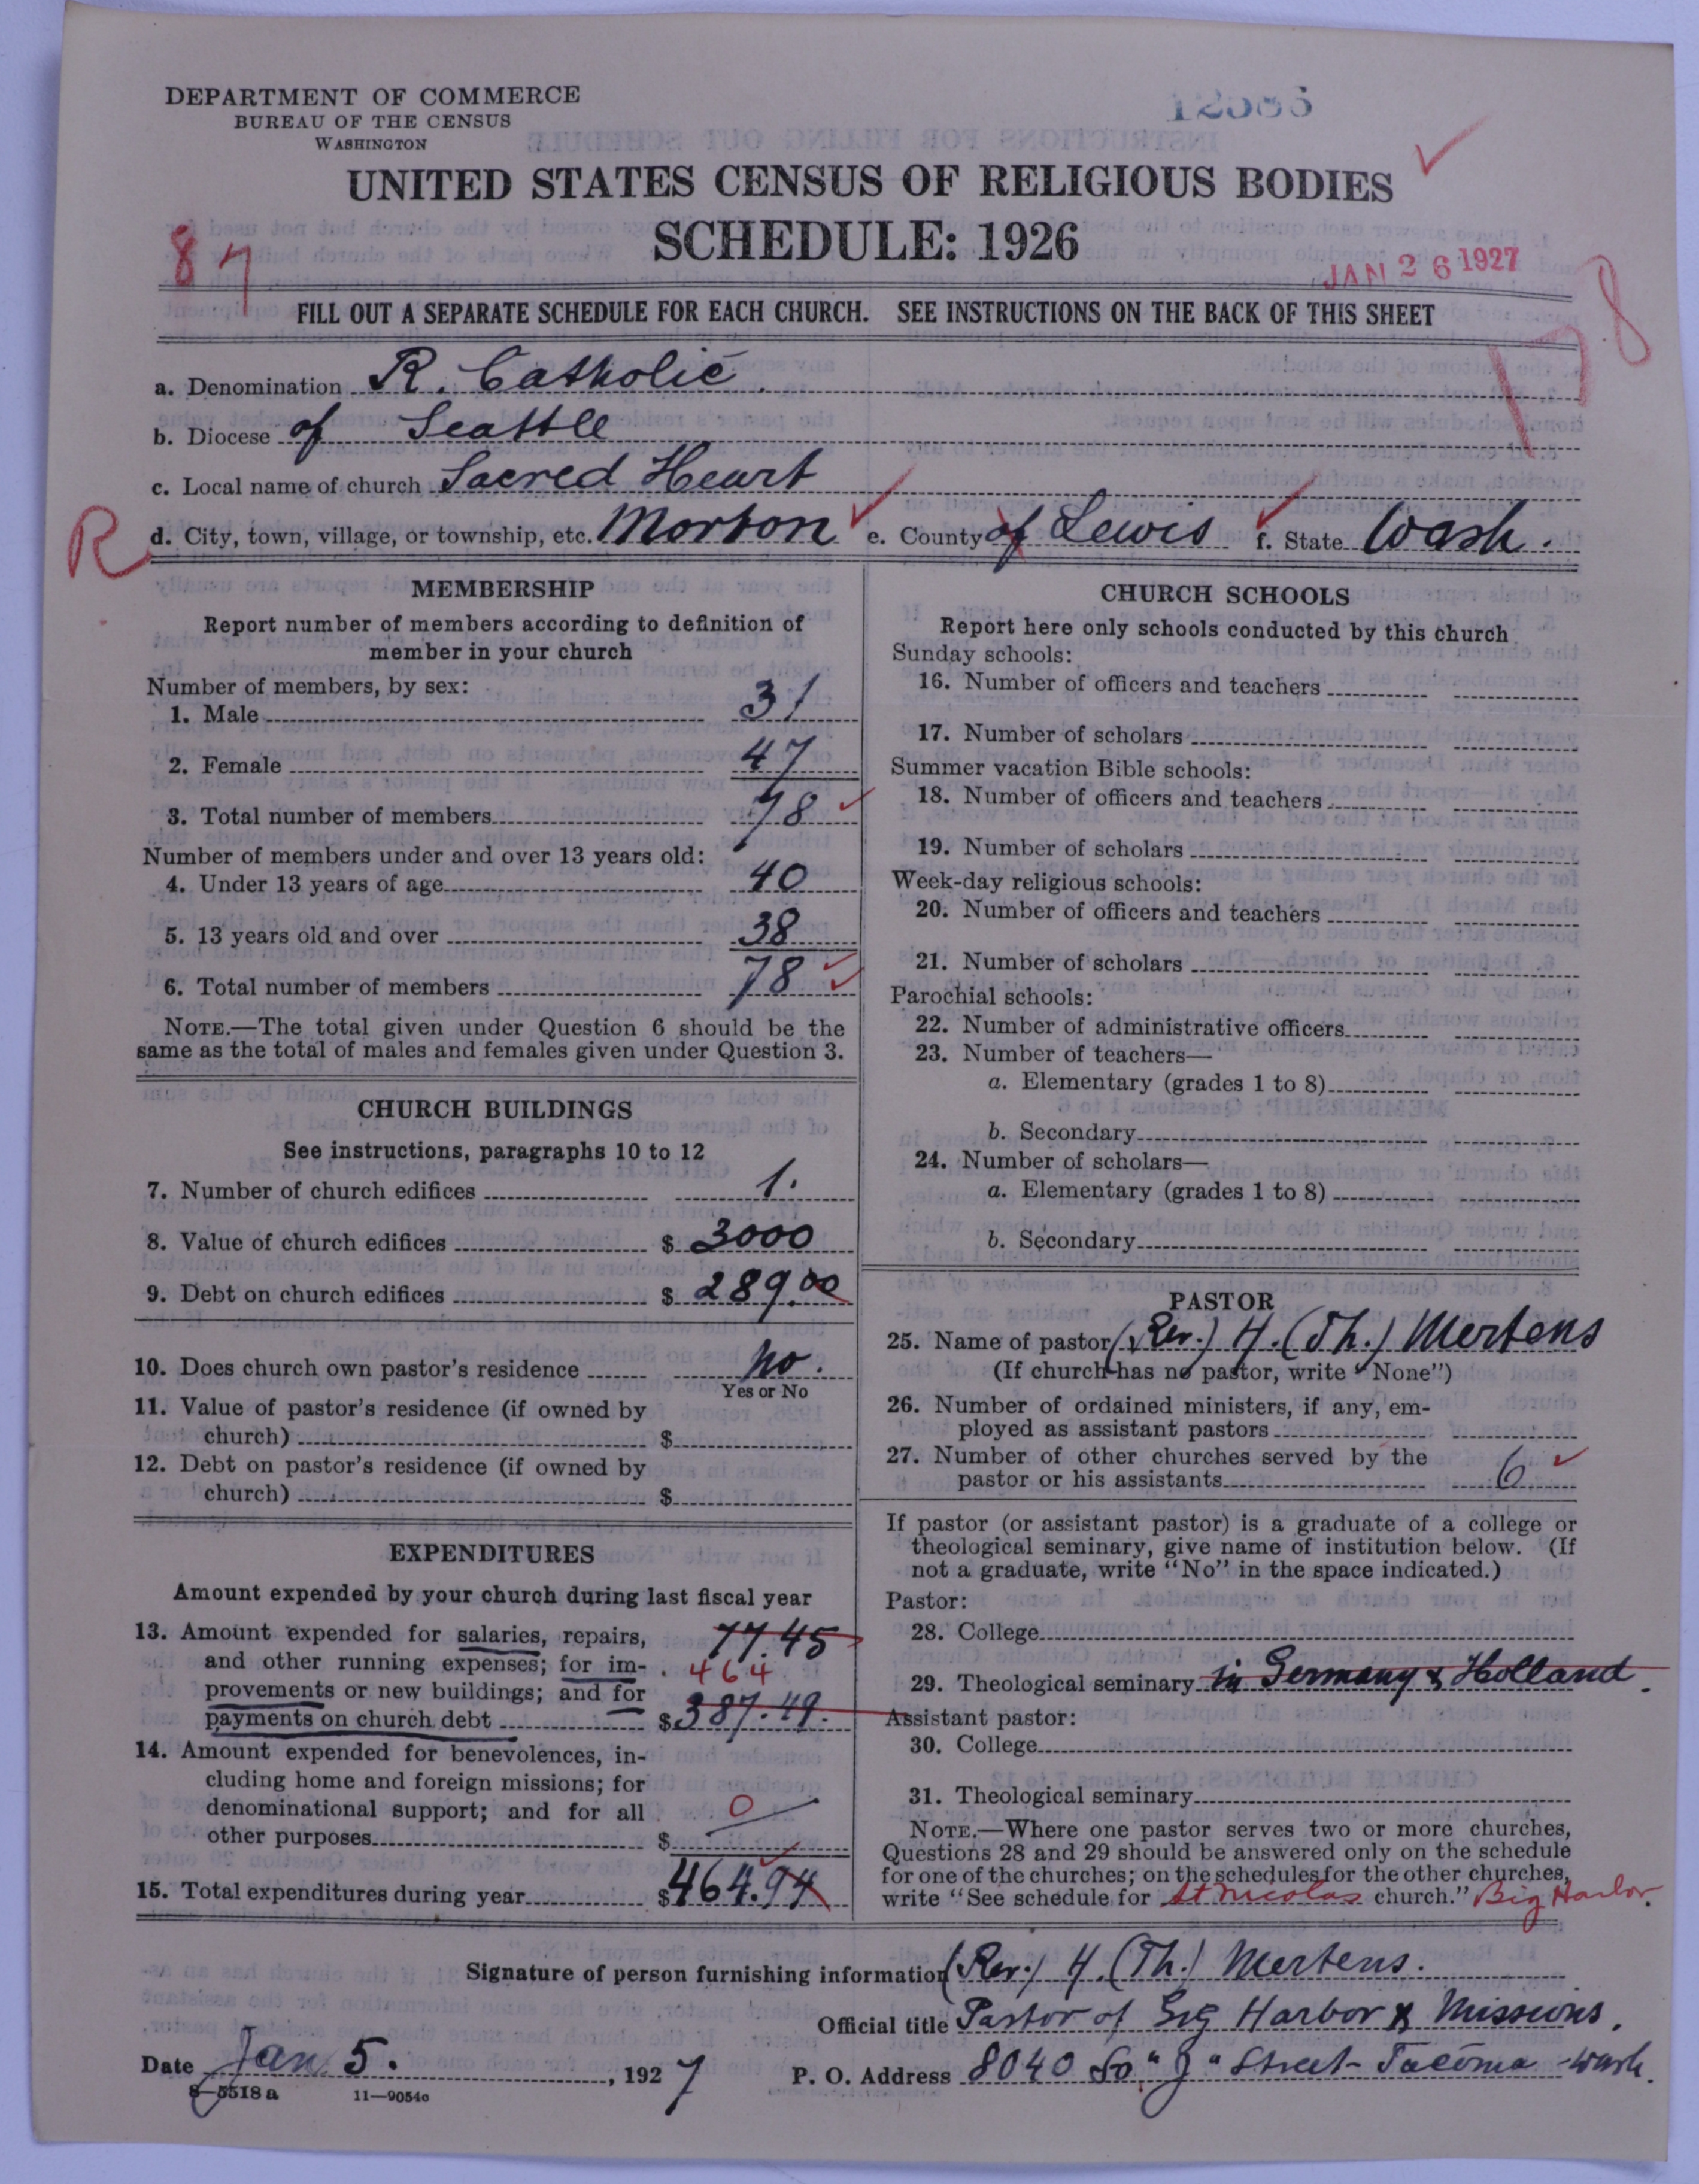 DEPARTMENT OF COMMERCE
BUREAU OF THE CENSUS
WASHINGTON
UNITED STATES CENSUS OF RELIGIOUS BODIES
SCHEDULE: 1926
87
JAN 26 1927
178
FILL OUT A SEPARATE SCHEDULE FOR EACH CHURCH. SEE INSTRUCTIONS ON THE BACK OF THIS SHEET
a. Denomination R. Catholic.
b. Diocese of Seattle
c. Local name of church Sacred Heart
R
d. City, town, village, or township, etc. Morton e. County of Lewis f. State Wash.
MEMBERSHIP
Report number of members according to definition of
member in your church
Number of members, by sex:
1. Male 31
2. Female 47
3. Total number of members 78
Number of members under and over 13 years old:
4. Under 13 years of age 40
5. 13 years old and over 38
6. Total number of members 78
NOTE.—The total given under Question 6 should be the
same as the total of males and females given under Question 3.
CHURCH BUILDINGS
See instructions, paragraphs 10 to 12
7. Number of church edifices 1.
8. Value of church edifices $ 3000
9. Debt on church edifices $ 289.00
10. Does church own pastor's residence No.
Yes or No
11. Value of pastor's residence (if owned by
church) $
12. Debt on pastor's residence (if owned by
church) $
EXPENDITURES
Amount expended by your church during last fiscal year
13. Amount expended for salaries, repairs, 77.45
and other running expenses; for im- 464
provements or new buildings; and for
payments on church debt $ 387.49.
14. Amount expended for benevolences, in-
cluding home and foreign missions; for
denominational support; and for all 0
other purposes $
15. Total expenditures during year $ 464.94
CHURCH SCHOOLS
Report here only schools conducted by this church
Sunday schools:
16. Number of officers and teachers
17. Number of scholars
Summer vacation Bible schools:
18. Number of officers and teachers
19. Number of scholars
Week-day religious schools:
20. Number of officers and teachers
21. Number of scholars
Parochial schools:
22. Number of administrative officers
23. Number of teachers—
a. Elementary (grades 1 to 8)
b. Secondary
24. Number of scholars—
a. Elementary (grades 1 to 8)
b. Secondary
PASTOR
25. Name of pastor (Rev.) H. (Th.) Mertens
(If church has no pastor, write "None")
26. Number of ordained ministers, if any, em-
ployed as assistant pastors
27. Number of other churches served by the
pastor or his assistants 6
If pastor (or assistant pastor) is a graduate of a college or
theological seminary, give name of institution below. (If
not a graduate, write "No" in the space indicated.)
Pastor:
28. College
29. Theological seminary in Germany & Holland.
Assistant pastor:
30. College
31. Theological seminary
NOTE.—Where one pastor serves two or more churches,
Questions 28 and 29 should be answered only on the schedule
for one of the churches; on the schedules for the other churches,
write "See schedule for St Nicolas church." Big Harbor.
Signature of person furnishing information (Rev.) H. (Th.) Mertens.
Official title Pastor of Gig Harbor & Missions.
Date Jan 5., 1927 P. O. Address 8040 So "J" Street - Tacoma - Wash.
8-5518 a 11-9054c